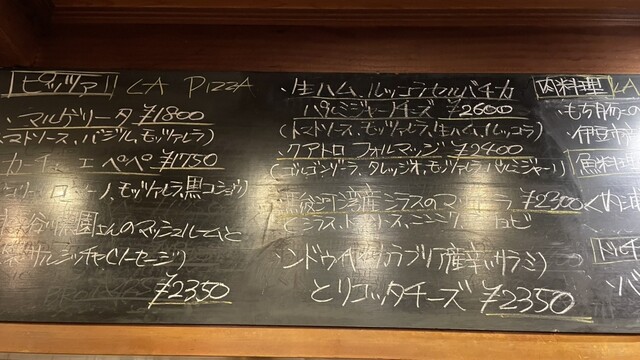 ピッツァ LA PIZZA
・マルゲリータ ¥1800
(トマトソース、バジル、モッツァレラ)
カーチョ エ ペペ ¥1750
モッツァレラ、黒コショウ)
園さんのマッシュルームと
サルシッチャ(ソーセージ)
¥2350
・生ハム、ルッコラセルバチカ
パルミジャーノチーズ ¥2600
(トマトソース、モッツァレラ、生ハム、ルッコラ)
・クアトロ フォルマッジ ¥2400
(ゴルゴンゾーラ、タレッジオ、モッツァレラ、パルミジャーノ)
駿河湾産シラスのマ ラ ¥2300
(シラス、ト ソース、ニンニク
ンドゥイヤ(カラブリア産辛いサラミ)
とリコッタチーズ ¥2350
肉料理 LA
・もち豚の
・伊豆市
魚料理